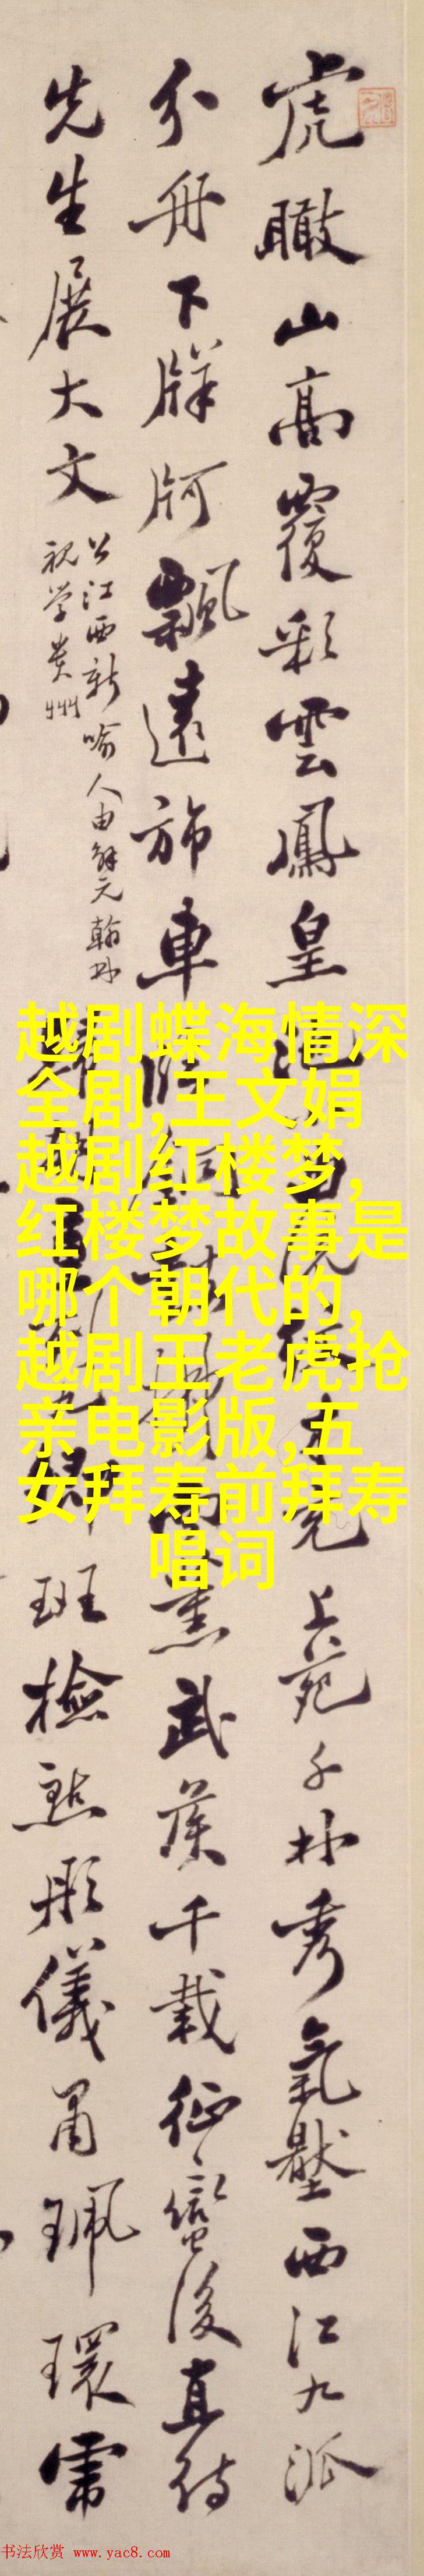 虎瞰山高覆彩雲鳳皇池 上苑千林秀氣壓西江九派
分舟下牂牁飄遠斾車 薰武侯千載征蠻後直待
先生展大文
公江西新喻人由解元翰林
視學貴州
班檢點彤儀 珮環
越剧蝶海情深
全剧,王文娟
越剧红楼梦,
红楼梦故事是
哪个朝代的,
越剧王老虎抢
亲电影版,五
女拜寿前拜寿
唱词
书法欣赏 www.yac8.com